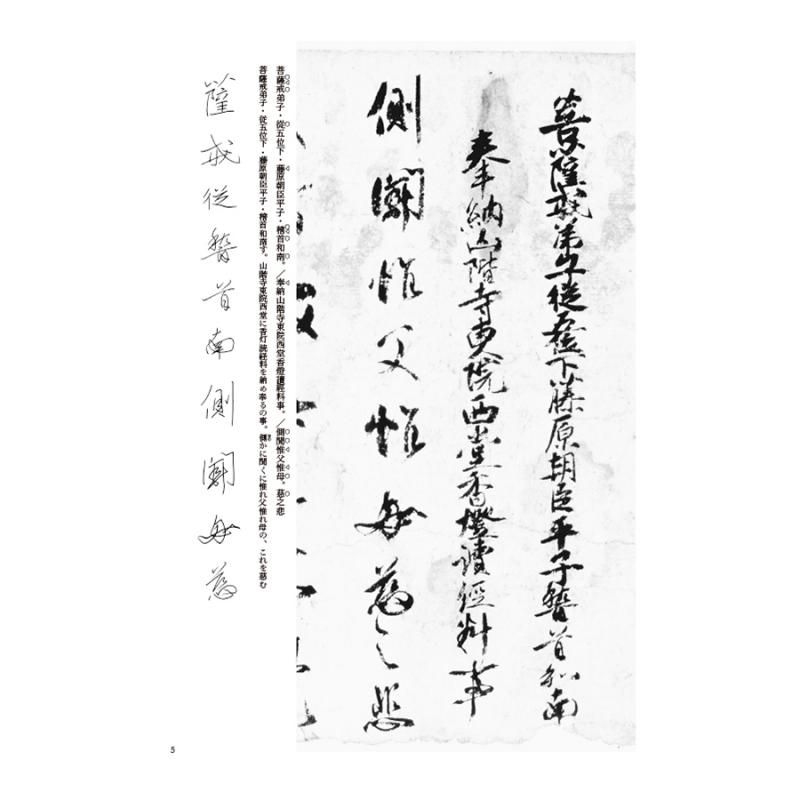 菩薩戒弟子從五位下藤原朝臣平子稽首和南
奉納山階寺東院西堂香燈讀經料事
側聞惟父惟母慈之悲
菩薩戒弟子・從五位下・藤原朝臣平子・稽首和南。／奉納山階寺東院西堂香燈讀經料事。／側聞惟父惟母。慈之悲
菩薩戒弟子・従五位下・藤原朝臣平子・稽首和南す。山階寺東院西堂に香灯読経料を納め奉るの事。側かに聞くに惟れ父惟れ母の、これを慈む
薩戒從稽首南側聞母慈
5